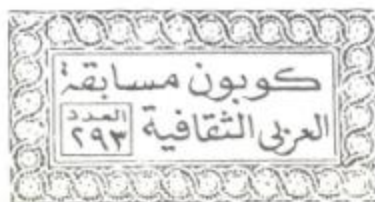 كوبون مسابقة
العربى الثقافية
العدد
٢٩٣